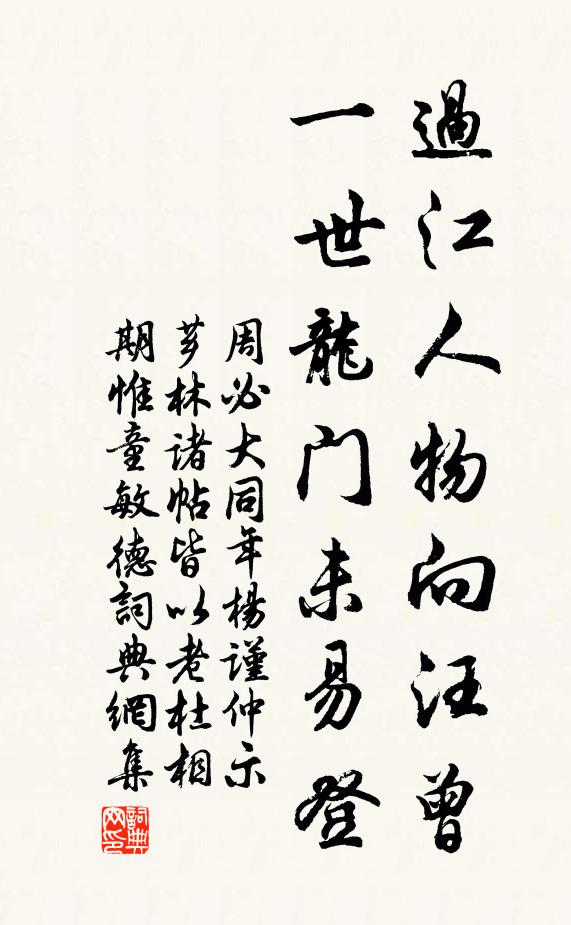 過江人物向汪曾
一世龍门未易登
周必大同年楊謹仲示
芗林诸帖皆以老杜相
期惟童敏德詞典網集
詞典网印